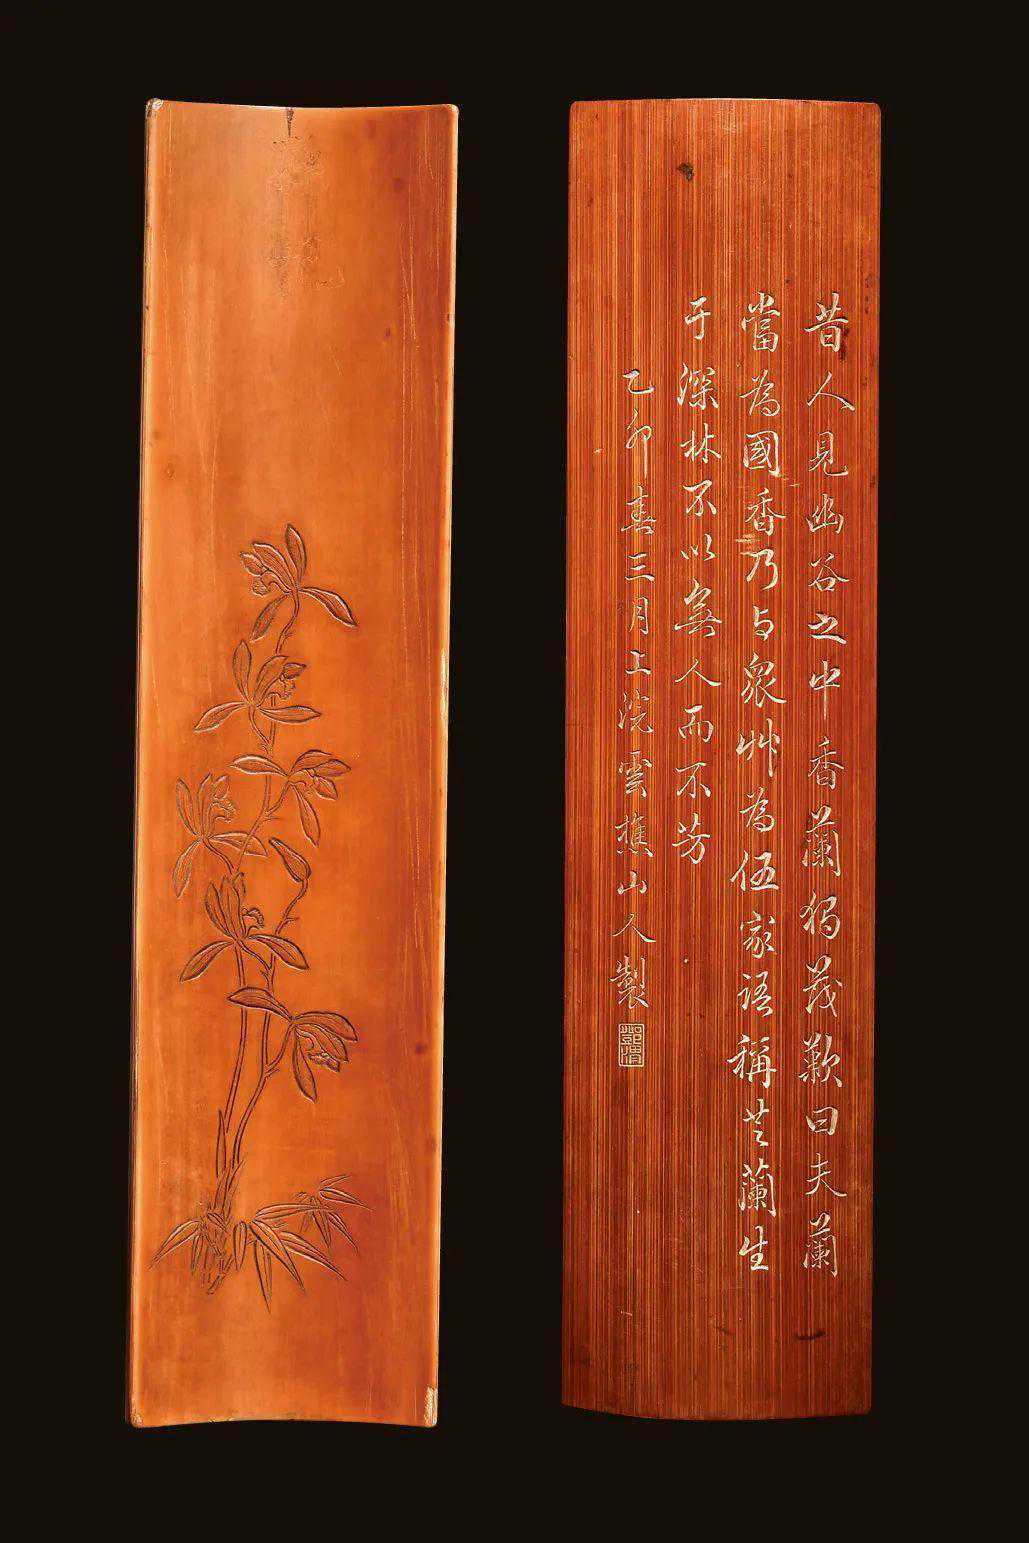 昔人見幽谷之中香蘭獨茂歎曰夫蘭
當為國香乃与眾艸為伍家語稱芝蘭生
于深林不以無人而不芳
乙卯春三月上浣雲樵山人製
鄧渭